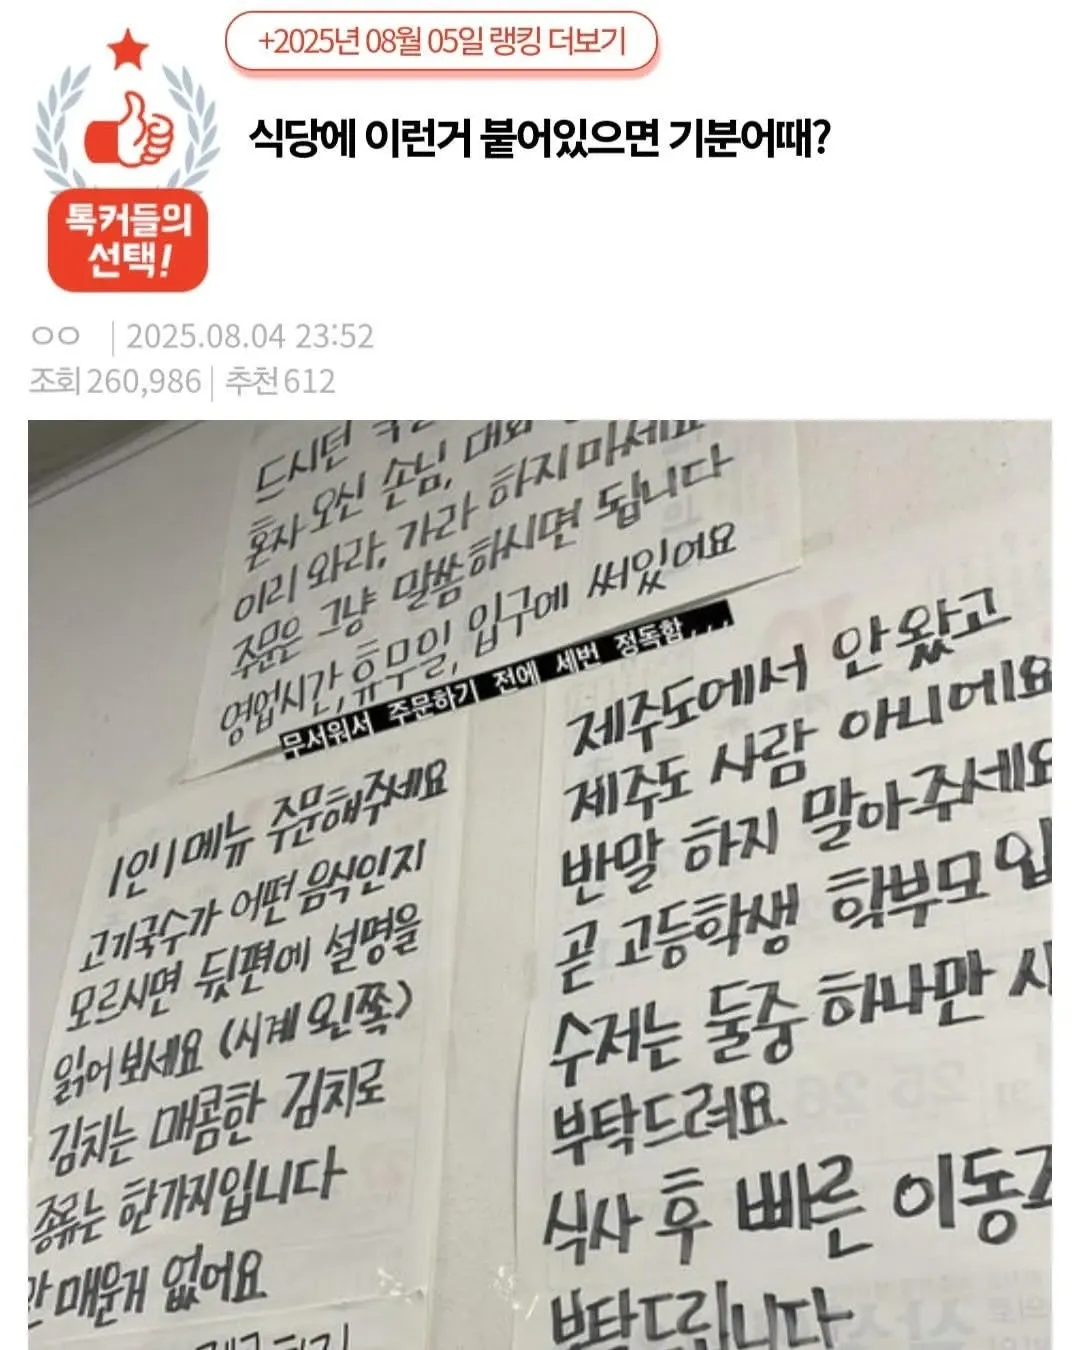 +2025년 08월 05일 랭킹 더보기
식당에 이런거 붙어있으면 기분어때?
톡커들의
선택!
ㅇㅇ | 2025.08.04 23:52
조회 260,986 | 추천 612
드시던
혼자 오신 손님, 대화
이리 와라, 가라 하지마세요
주문은 그냥 말씀하시면 됩니다
영업시간, 휴무일, 입구에 써있어요
무서워서 주문하기 전에 세번 정독함,,,
1인 1메뉴 주문해주세요
고기국수가 어떤 음식인지
모르시면 뒷편에 설명을
읽어보세요 (시계 왼쪽)
김치는 매콤한 김치로
종류는 한가지입니다
안 매운게 없어요
제주도에서 안 왔고
제주도 사람 아니에요
반말 하지 말아주세요
곧 고등학생 학부모 입
수저는 둘중 하나만 사
부탁드려요
식사 후 빠른 이동
부탁드립니다